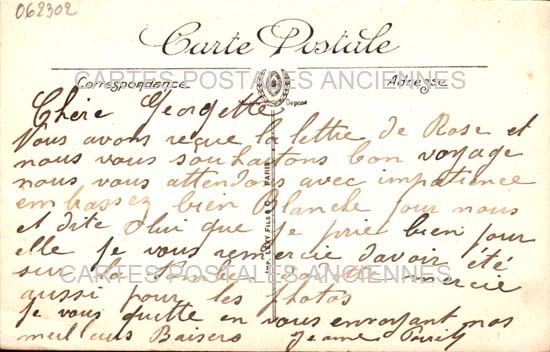 062302
Carte Postale
CARTES POSTALES ANCIENNES
Correspondance
Adresse
Déposé
Chère Georgette
Vous avons reçue la lettre de Rose et
nous vous souhaitons bon voyage
nous vous attendons avec impatience
embassez bien Blanche pour nous
et dite lui que je prie bien pour
elle je vous remercie d'avoir été
sur la tombe
CARTES POSTALES ANCIENNES
mercie
aussi pour les photos
je vous quitte en vous envoyant nos
meilleurs Baisers Jeanne
IMP. LEVY FILS & Cie PARIS